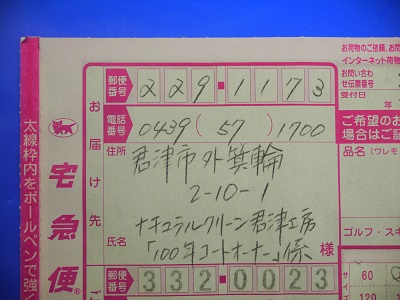 お荷物のご依頼、お問
インターネット荷物
お問い合わ
せ伝票番号
受付日
年
ご希望のお
場合はご記
品名（ワレモ
ゴルフ・スキ
60
120
太線枠内をボールペンで強く
宅急便®
お届け先
郵便番号 229-1173
電話番号 0439(57)1700
住所 君津市外箕輪
2-10-1
ナチュラルクリーン君津工房
氏名 「100年コートオーナー」係 様
郵便 332-0023